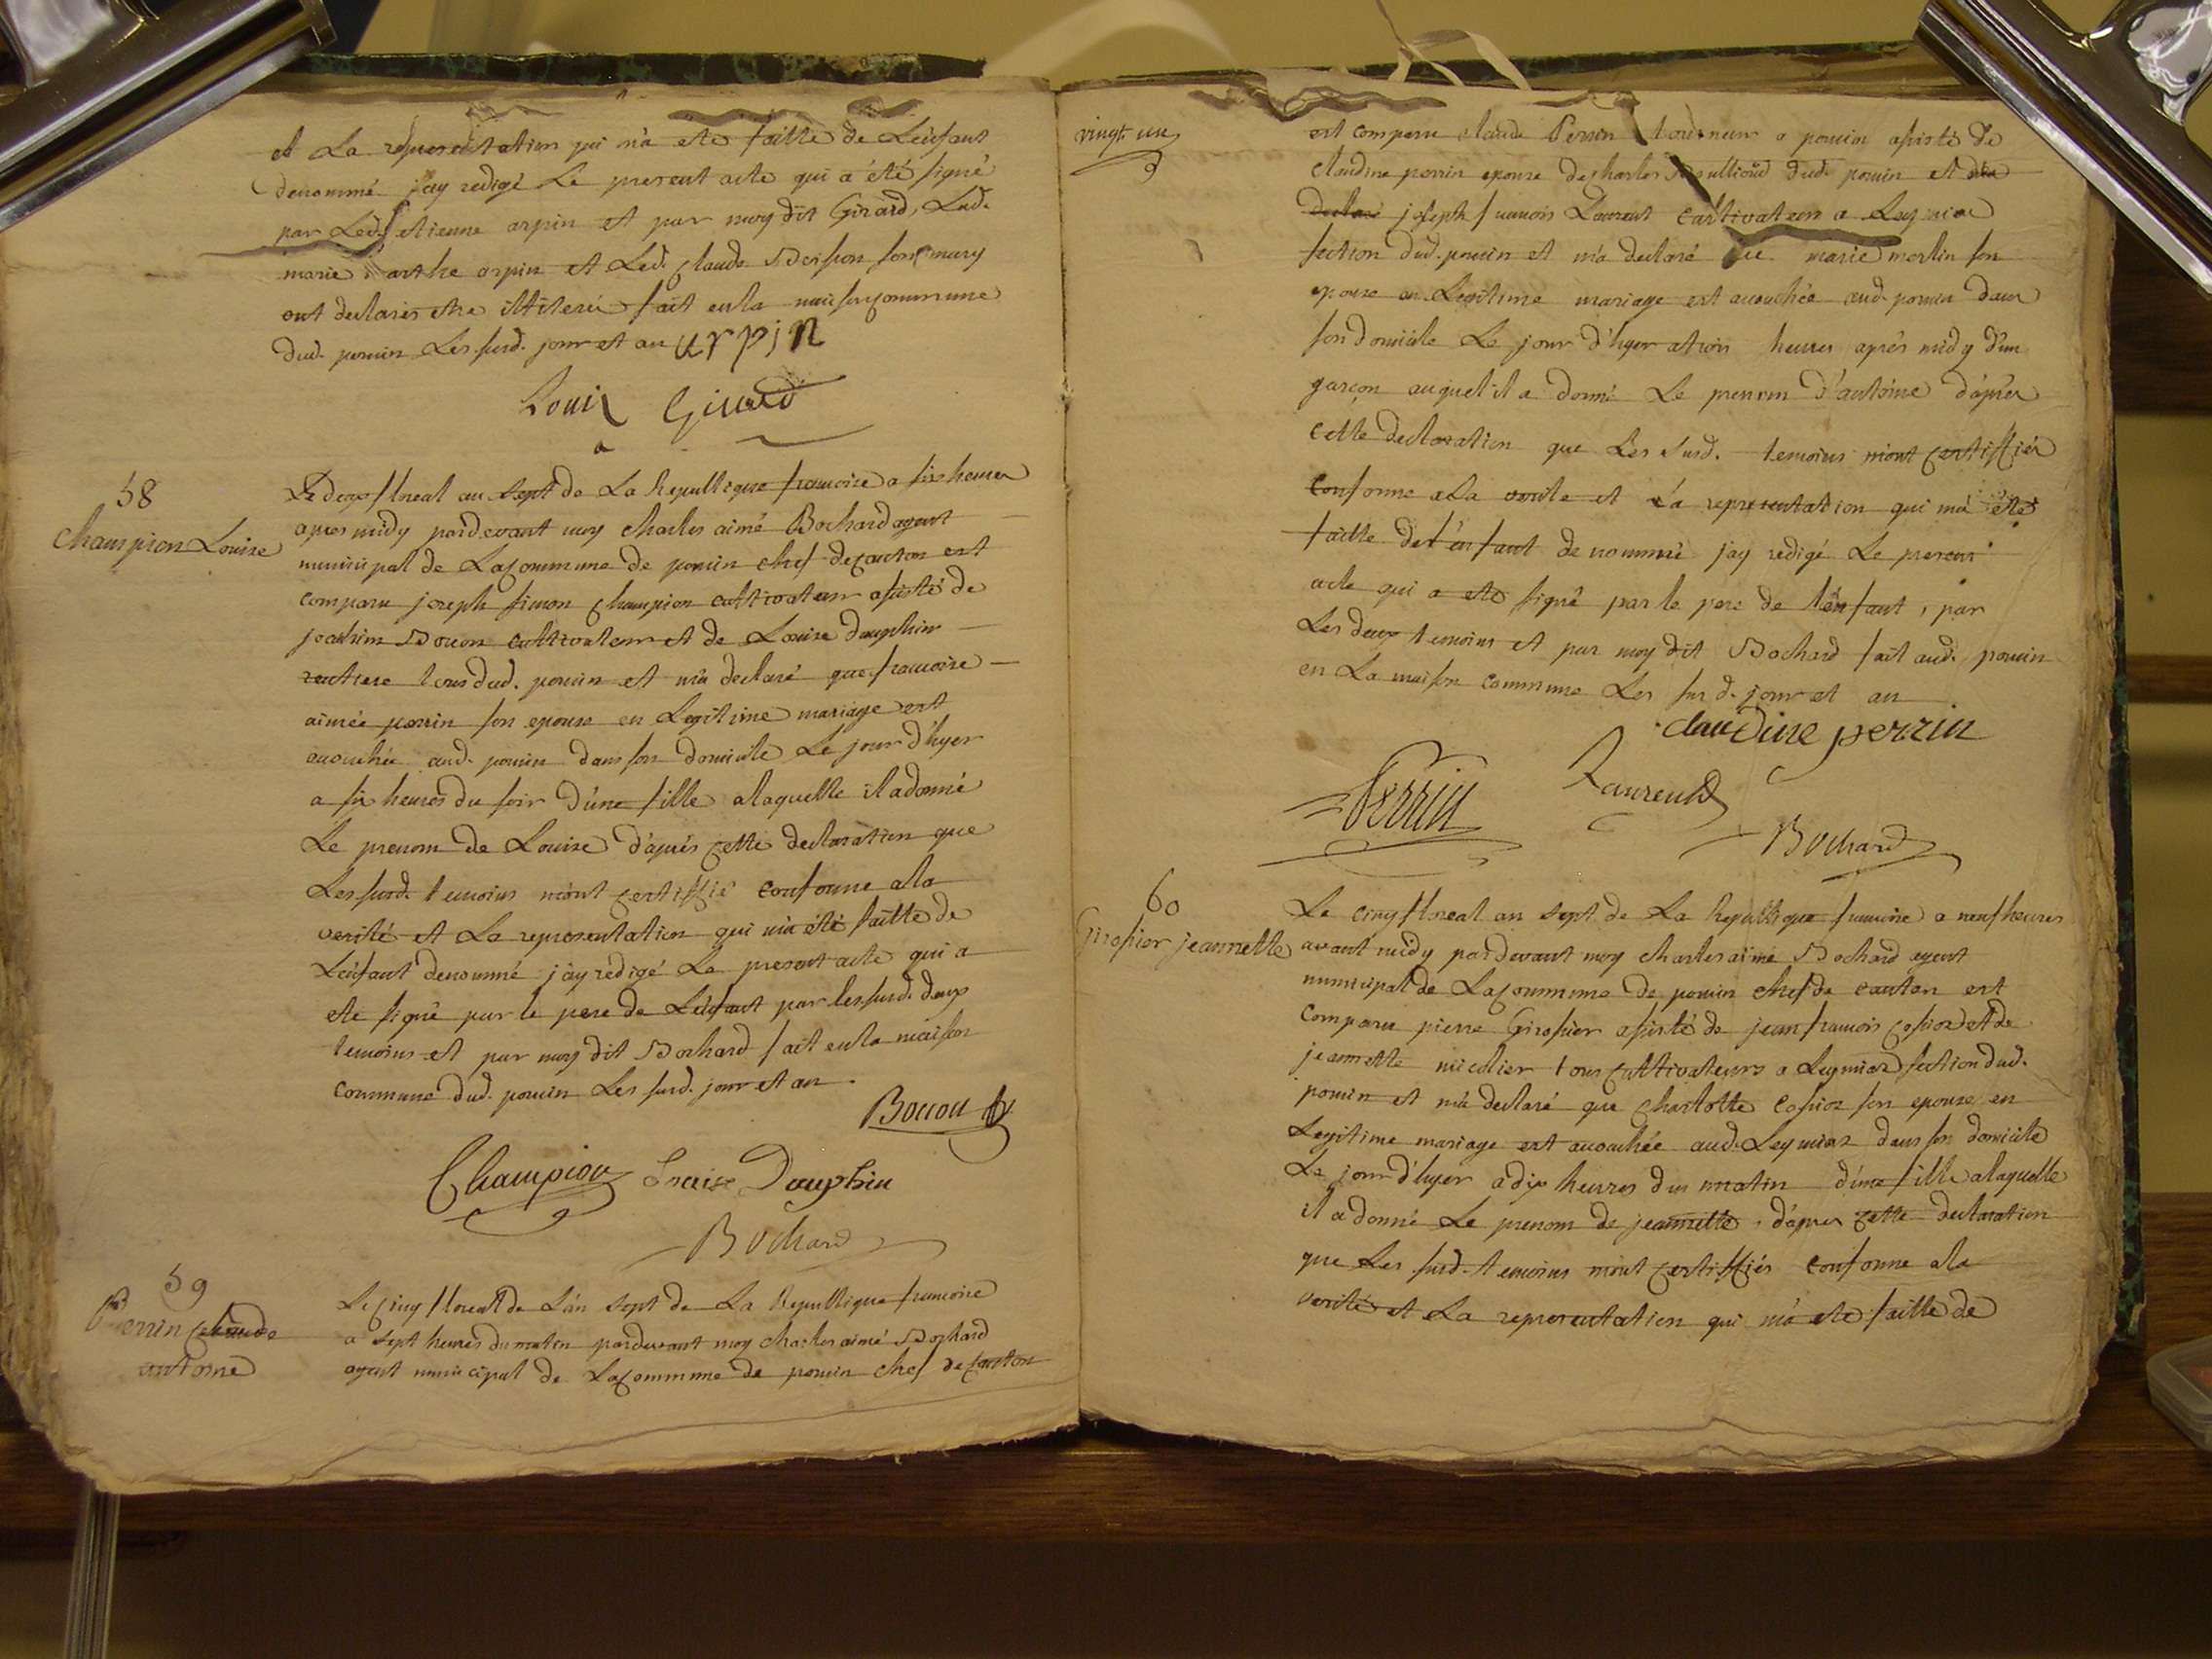 et La representation qui m'a ete faitte de L'enfant
denommé j'ay redigé Le present acte qui a été signé
par Led. etienne arpin et par moy dit Girard, Lad.
marie marthe arpin et Led. Claude son mary
ont declarés etre illiteré fait en la maison commune
dud. poncin Les susd. jour et an arpin
Louis Girard
58
Champion Louise
Le deux floreal an sept de La Republique francoise a six heures
apres midy pardevant moy charles aimé Bochard agent
municipal de La commune de poncin chef de canton est
comparu joseph simon Champion cultivateur asisté de
joachim Bocon cultivateur et de Louise dauphin
rentiere tous dud. poncin et m'a declaré que francoise
aimée perrin son epouse en Legitime mariage est
acouchée aud. poncin dans son domicile Le jour d'hyer
a six heures du soir d'une fille a laquelle il a donné
Le prenom de Louise d'après cette declaration que
Les susd. temoins m'ont certiffié conforme a la
verité et La representation qui m'a été faitte de
L'enfant denommé j'ay rédigé Le present acte qui a
ete signé par le pere de L'enfant par les susd. deux
temoins et par moy dit Bochard fait en la maison
commune dud. poncin Les susd. jour et an.
Bocon
Champion Louise Dauphin
Bochard
59
Perrin Claude
antoine
Le cinq floreal de L'an sept de La Republique francoise
a sept heures du matin pardevant moy charles aimé Bochard
agent municipal de La commune de poncin chef de canton
vingt un
est comparu claude Perrin tourneur a poncin asisté de
claudine perrin epouse de charles dud. poncin et
joseph francois Laurent cultivateur a Leymiat
section dud. poncin et m'a declaré que marie merlin son
epouse en Legitime mariage est acouchée aud. poncin dans
son domicile Le jour d'hyer a trois heures après midy d'un
garçon auquel il a donné Le prenom d'antoine d'après
cette declaration que Les susd. temoins m'ont certiffiés
conforme a La verité et La representation qui m'a été
faitte de L'enfant denommé j'ay redigé Le present
acte qui a ete signé par le pere de l'enfant, par
Les deux temoins et par moy dit Bochard fait aud. poncin
en La maison commune Les susd. jour et an
claudine perrin
Perrin Laurent
Bochard
60
Girosier jeannette
Le cinq floreal an sept de La Republique francoise a neuf heures
avant midy pardevant moy charles aimé Bochard agent
municipal de La commune de poncin chef de canton est
comparu pierre Girosier asisté de jean francois et de
jeannette nicolier tous cultivateurs a Leymiat section dud.
poncin et m'a declaré que charlotte son epouse en
Legitime mariage est acouchée aud. Leymiat dans son domicile
Le jour d'hyer a dix heures du matin d'une fille a laquelle
il a donné Le prenom de jeannette, d'apres cette declaration
que Les susd. temoins m'ont certiffiés conforme a la
verité et La representation qui m'a ete faitte de